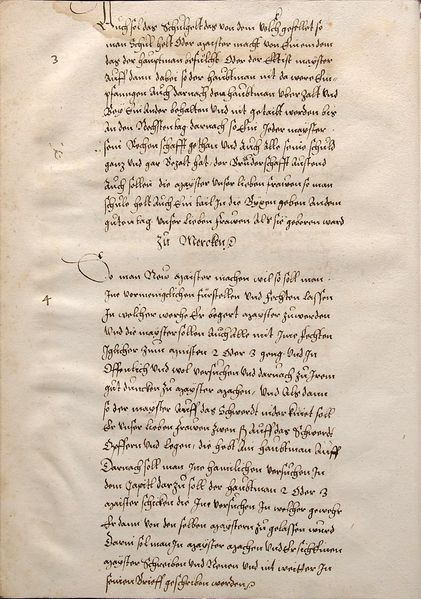 Auch sol das Schulgelt das von dem volck gefellet so
man Schul helt Oder maister macht von Einem dem
das der haubtman befilcht Oder der Eltist mayster
Auff dem dabei so der haubtman nit da were Ein-
pfanngen Auch darnach dem haubtman uberzalt Und
Bey Einander behalten Und nit getailt werden bis
An den Nechsten tag darnach so Ein Jeder mayster
sein Rechenschafft gethan Und Auch Alle seine schuld
ganz Und gar Bezalt hat, der Brüderschafft Austend
Auch sollen die mayster Unser lieben frawen so man
schuel helt Auch Ein tail In die Büxen geben An dem
guten tag Unser lieben frawen Als sie geboren ward
Zu Mercken
3
So man New maister machen wil so soll man
Ine vormeniglichen fürstellen Und fechten lassen
In welcher wehre Er begert mayster zuwerden
Und die mayster sollen Auch Alle mit Ime fechten
Iglicher zum minsten 2 Oder 3 geng Und In
Offentlich Und wol versuchen Und darnach zu Irem
gut duncken zu mayster machen, Und Als dann
so der mayster Auff das Schwerdt nider kniet soll
Er Unser lieben frawen zwen fl Auff das Schwerdt
Opffern Und Legen, die hebt Am haubtman Auff
Darnach soll man Ine haimlichen versuchen In
dem Capittl darzu soll der haubtman 2 Oder 3
maister schicken die Ine versuchen In welcher gewehr
Er dann von den selben maystern zu gelassen wurd
Darin sol man In mayster machen Und Er sich Einen
mayster Schreiben Und Nenen Und nit weitter In
seinen Brieff geschriben werden
4